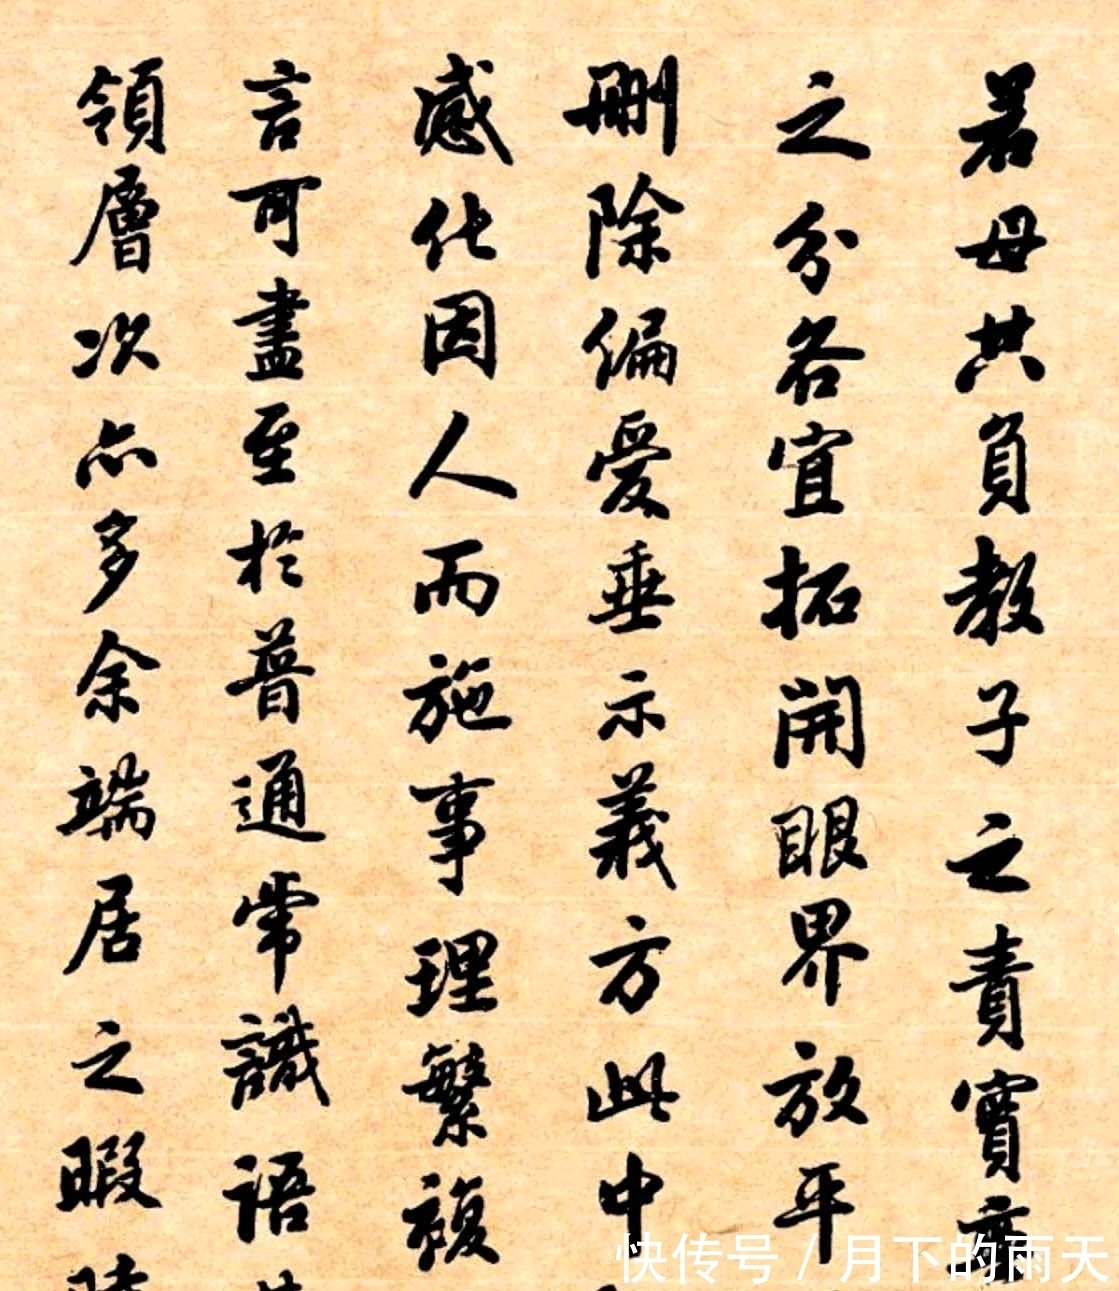 若母共負教子之責實無
之分各宜拓開眼界放平
刪除偏愛垂示義方此中
感化因人而施事理繁複
言可盡至於普通常識語
領層次亦多余端居之暇
快传号/月下的雨天